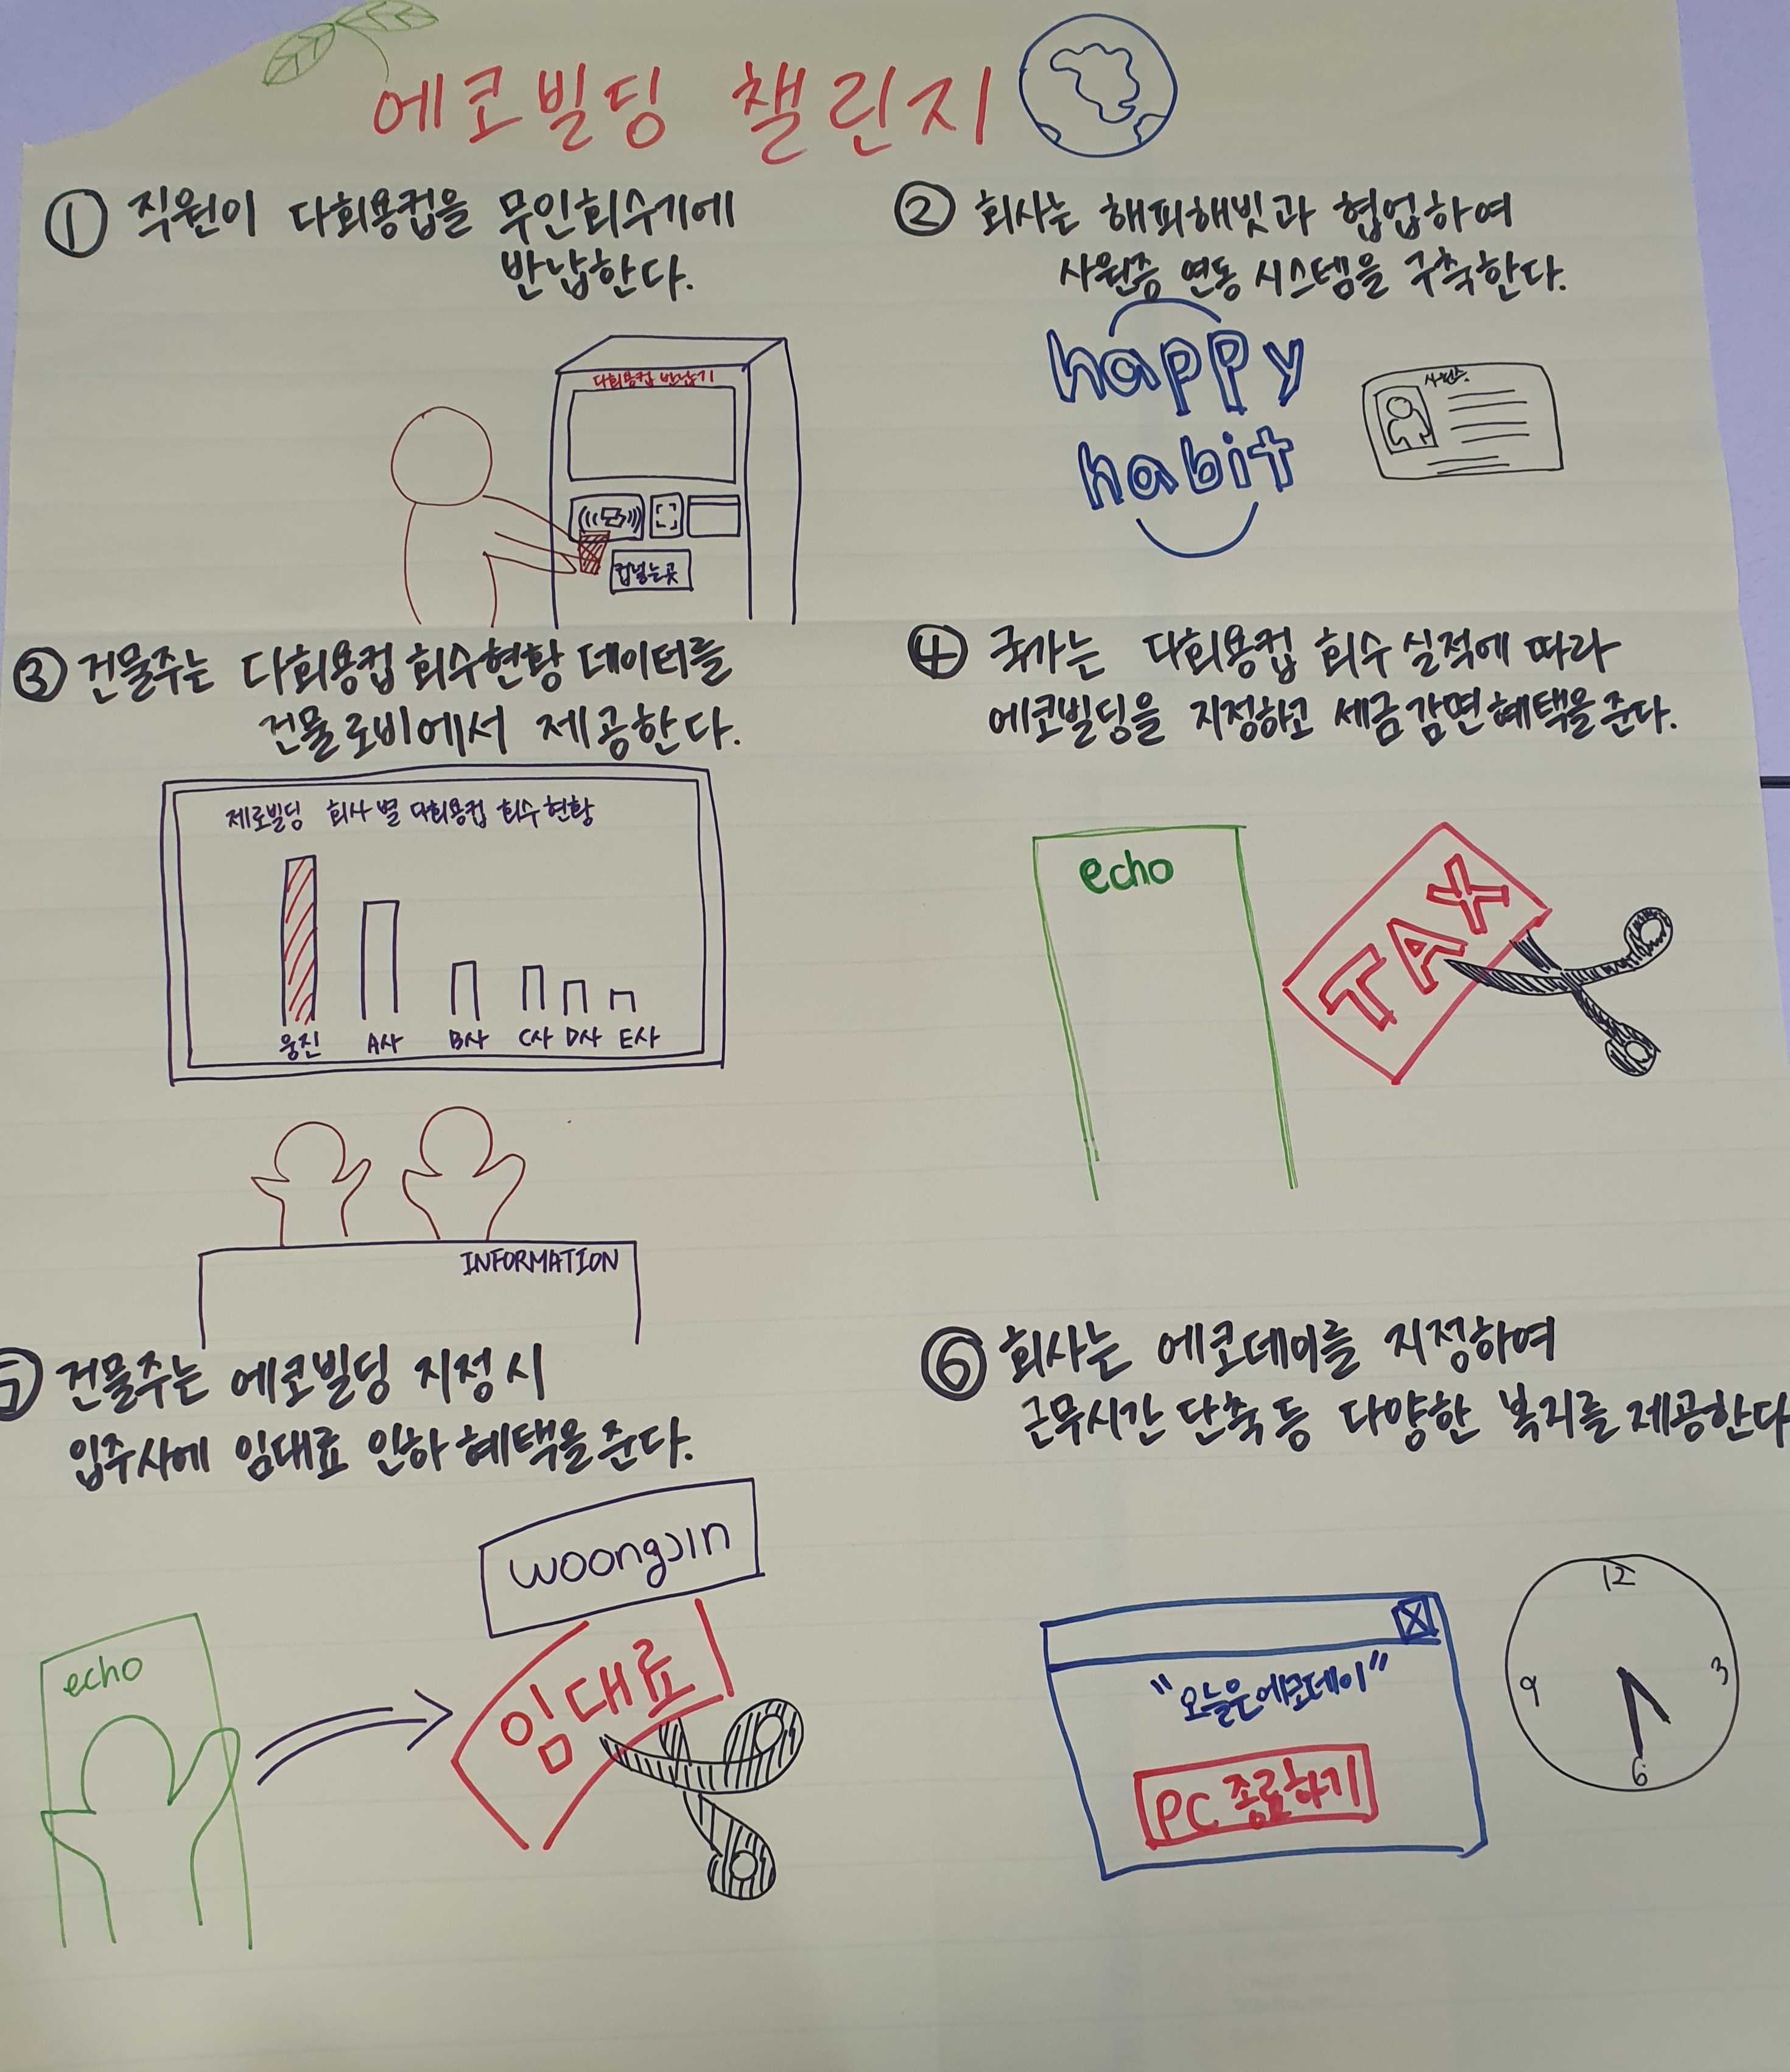 에코빌딩 챌린지
① 직원이 다회용컵을 무인회수기에
반납한다.
다회용컵 반납기
컵넣는곳
② 회사는 해피해빗과 협업하여
사원증 연동 시스템을 구축한다.
happy
habit
사원증
③ 건물주는 다회용컵 회수현황 데이터를
건물로비에서 제공한다.
제로빌딩 회사별 다회용컵 회수현황
웅진 A사 B사 C사 D사 E사
INFORMATION
④ 국가는 다회용컵 회수 실적에 따라
에코빌딩을 지정하고 세금감면혜택을 준다.
echo
TAX
⑤ 건물주는 에코빌딩 지정시
입주사에 임대료 인하 혜택을 준다.
woongjin
echo
임대료
⑥ 회사는 에코데이를 지정하여
근무시간 단축 등 다양한 복지를 제공한다
"오늘은에코데이"
PC 종료하기
12
9 3
6